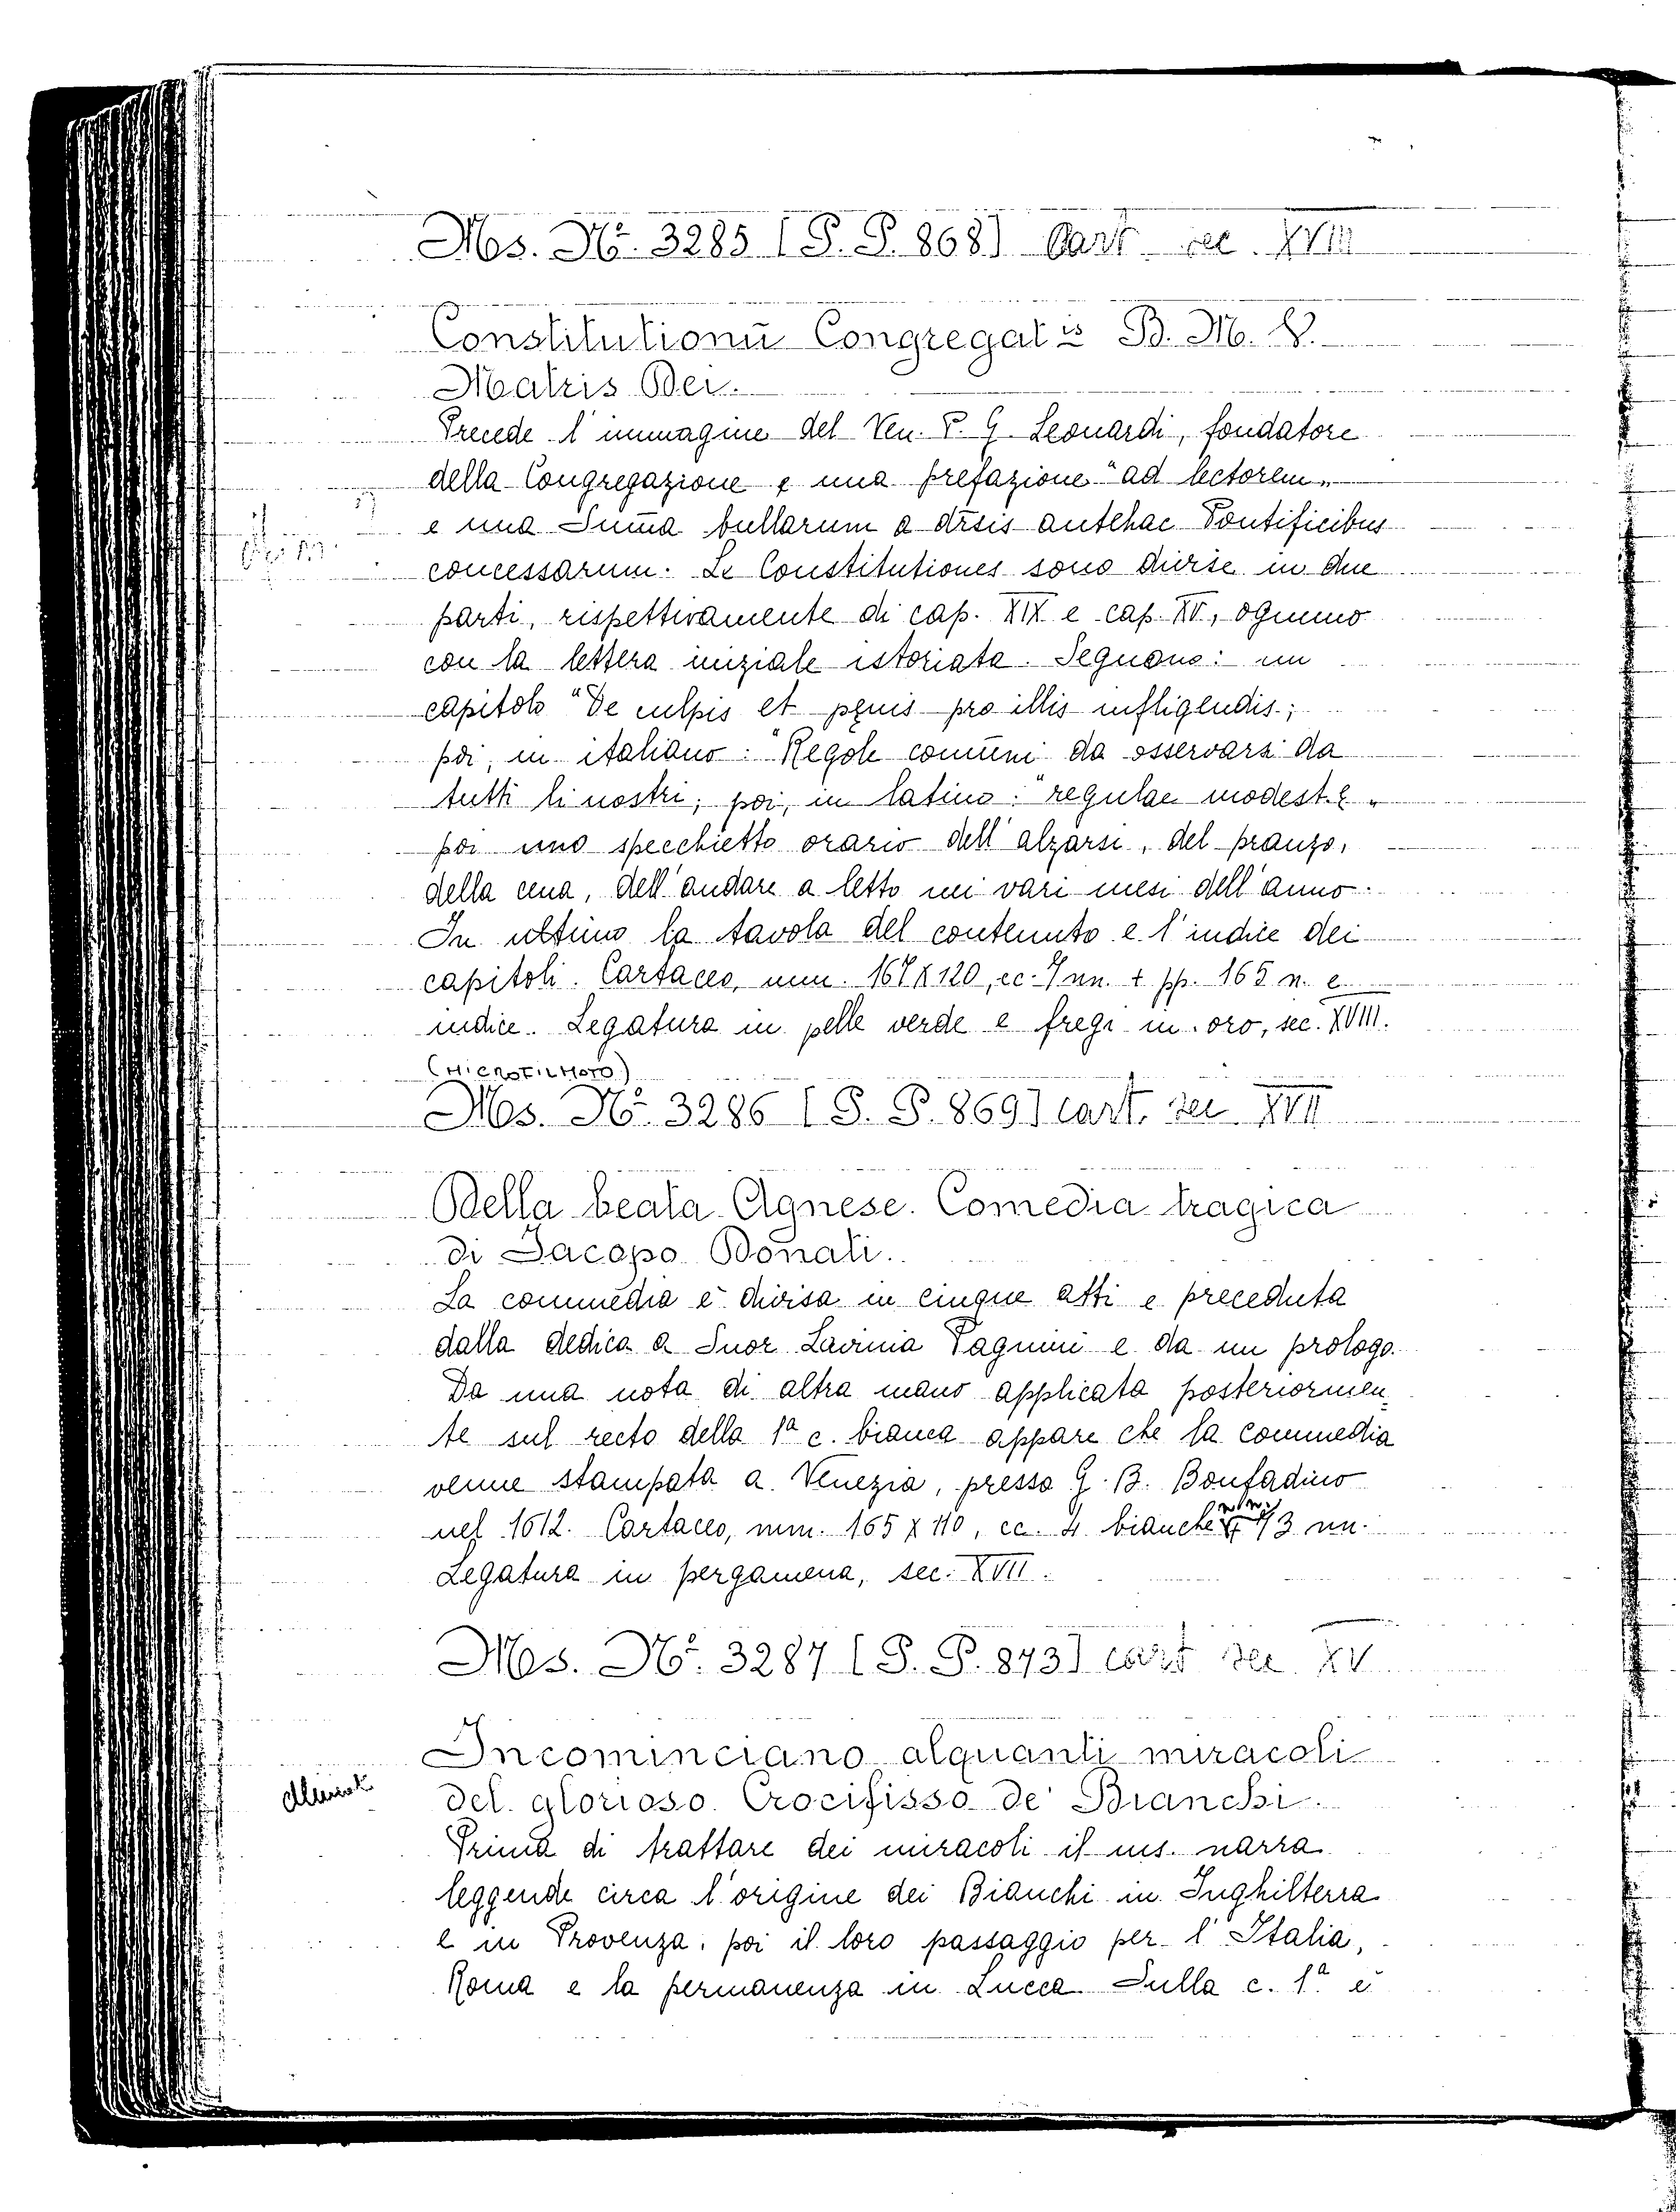 Ms. Nº. 3285 [S. P. 868] Cart. sec. XVIII
Constitutionū Congregatis B. M. V.
Matris Dei.
Precede l'immagine del Ven. P. G. Leonardi, fondatore
della Congregazione e una prefazione "ad lectorem"
e una Suma bullarum a drsis antehac Pontificibus
concessarum. Le Constitutiones sono divise in due
parti, rispettivamente di cap. XIX e cap. XV, ognuno
con la lettera iniziale istoriata. Seguono: un
capitolo "De culpis et penis pro illis infligendis;
poi, in italiano: "Regole comuni da osservarsi da
tutti li nostri; poi, in latino: "regulae modestę"
poi uno specchietto orario dell'alzarsi, del pranzo,
della cena, dell'andare a letto nei vari mesi dell'anno.
In ultimo la tavola del contenuto e l'indice dei
capitoli. Cartaceo, mm. 167 x 120, cc. 7 nn. + pp. 165 n. e
indice. Legatura in pelle verde e fregi in oro, sec. XVIII.
(MICROFILMATO)
Ms. Nº. 3286 [S. P. 869] cart. sec. XVII
Della beata Agnese. Comedia tragica
di Jacopo Donati.
La commedia è divisa in cinque atti e preceduta
dalla dedica a Suor Lavinia Pagnini e da un prologo.
Da una nota di altra mano applicata posteriormen_
te sul recto della 1ª c. bianca appare che la commedia
venne stampata a Venezia, presso G. B. Bonfadino
nel 1612. Cartaceo, mm. 165 x 110, cc. 4 bianche nn.
Legatura in pergamena, sec. XVII.
Ms. Nº. 3287 [S. P. 873] cart sec XV
Incominciano alquanti miracoli
del glorioso Crocifisso de' Bianchi.
Prima di trattare dei miracoli il ms. narra
leggende circa l'origine dei Bianchi in Inghilterra
e in Provenza; poi il loro passaggio per l'Italia,
Roma e la permanenza in Lucca. Sulla c. 1ª è